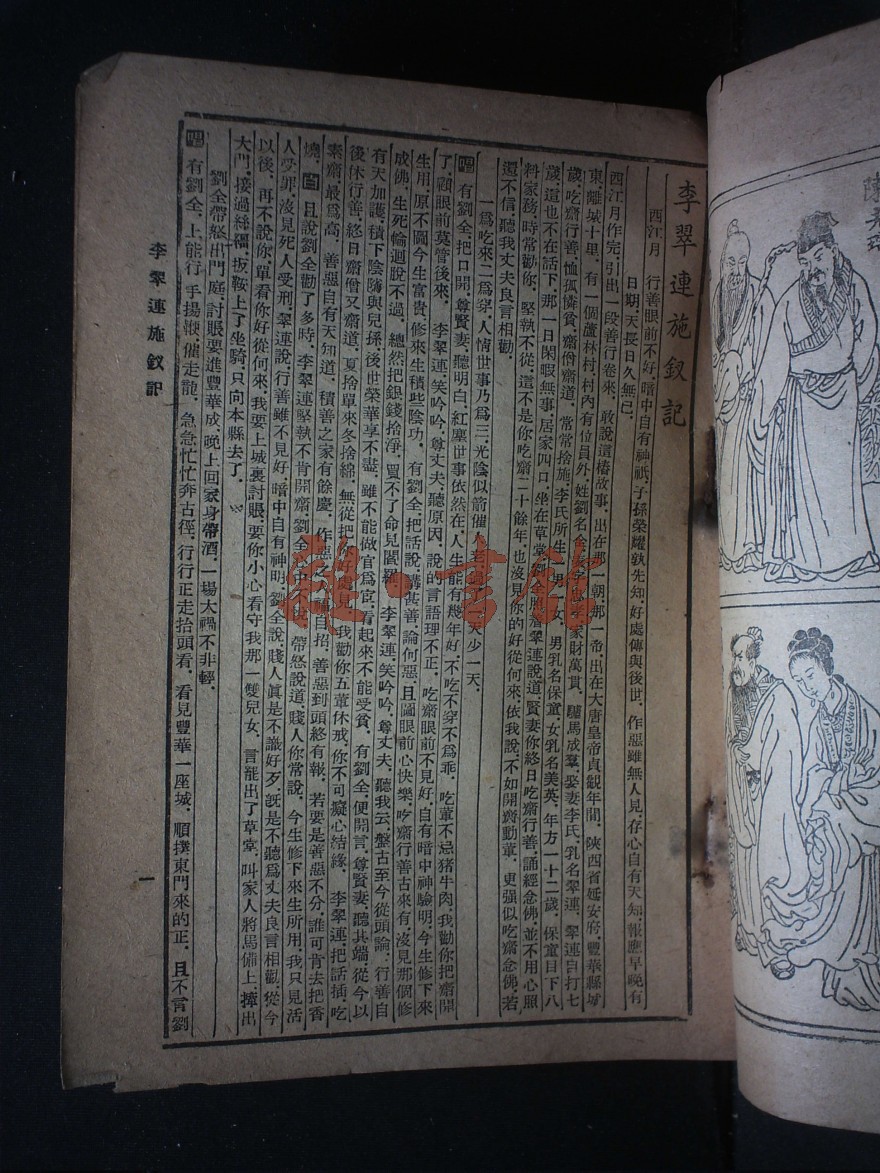 李翠連施釵記
西江月　行善眼前不好，暗中自有神祇，子孫榮耀孰先知，好處傳與後世。作惡雖無人見，存心自有天知，報應早晚有
日期，天長日久無已。
西江月作完，引出一段善行卷來，敢說這樁故事，出在那一朝那一帝，出在大唐皇帝貞觀年間，陝西省延安府，豐華縣城
東，離城十里，有一個蘆林村，村內有位員外，姓劉名全，家財萬貫，騾馬成羣，娶妻李氏，乳名翠連，翠連自打七
歲，吃齋行善，恤孤憐貧，齋僧齋道，常常捨施，李氏所生一男一女，男乳名保童，女乳名美英，年方一十二歲，保童目下八
歲，這也不在話下，那一日閑暇無事，居家四口，坐在草堂，劉全開言，翠連說道，賢妻你終日吃齋行善，誦經念佛，並不用心照
料家務，時常勸你，堅執不從，這不是你吃齋二十餘年，也沒見你的好從何來，依我說不如開齋動葷，更强似吃齋念佛，若
還不信，聽我丈夫良言相勸。
一爲吃來二爲穿，人情世事乃爲三，光陰似箭催人老，少一天。
唱 有劉全，把口開，尊賢妻，聽明白，紅塵世事依然在，人生能有幾年好，不吃不穿不爲乖，吃葷不忌猪牛肉，我勸你把齋開
了，顧眼前莫管後來，李翠連，笑吟吟，尊丈夫，聽原因，說的言語理不正，吃齋眼前不見好，自有暗中神驗明，今生修下來
生用，原不圖今生富貴，修來生積些陰功，有劉全，把話說，講甚善，論何惡，且圖眼前心快樂，吃齋行善古來有，沒見那個修
成佛，生死輪迴說不過，總然把銀錢捨淨，買不了命見閻羅，李翠連，笑吟吟，尊丈夫，聽我云，盤古至今從頭論，行善自
有天加護，積下陰隲與兒孫，後世榮華享不盡，雖不能做官爲宦，看起來不能受貧，有劉全，便開言，尊賢妻，聽其端，從今以
後休行善，終日齋僧又齋道，夏捨單來冬捨綿，無從把你好處見，我勸你五葷休戒，你不可癡心結緣，李翠連，把話插，吃
素齋，最爲高，善惡自有天知道，積善之家有餘慶，作惡之，自招，善惡到頭終有報，若要是善惡不分，誰可肯去把香
燒，白 且說劉全勸了多時，李翠連堅執不肯開齋，劉全心中不，帶怒說道，賤人你常說，今生修下來生所用，我只見活
人受罪，沒見死人受刑，翠連說，行善雖不見好，暗中自有神明，劉全說，賤人眞是不識好歹，旣是不聽爲丈夫良言相勸，從今
以後，再不說你，單看你好從何來，我要上城裏討賬，要你小心看守我那一雙兒女，言罷出了草堂，叫家人將馬備上，攆出
大門，接過絲韁，扳鞍上了坐騎，只向本縣去了。
劉全帶怒出門庭，討賬要進豐華成，晚上回家身帶酒，一場大禍不非輕。
唱 有劉全，上能行，手揚鞭，催走龍，急急忙忙奔古徑，行行正走抬頭看，看見豐華一座城，順撰東門來的正，且不言劉
李翠連施釵記
一
雜·書館